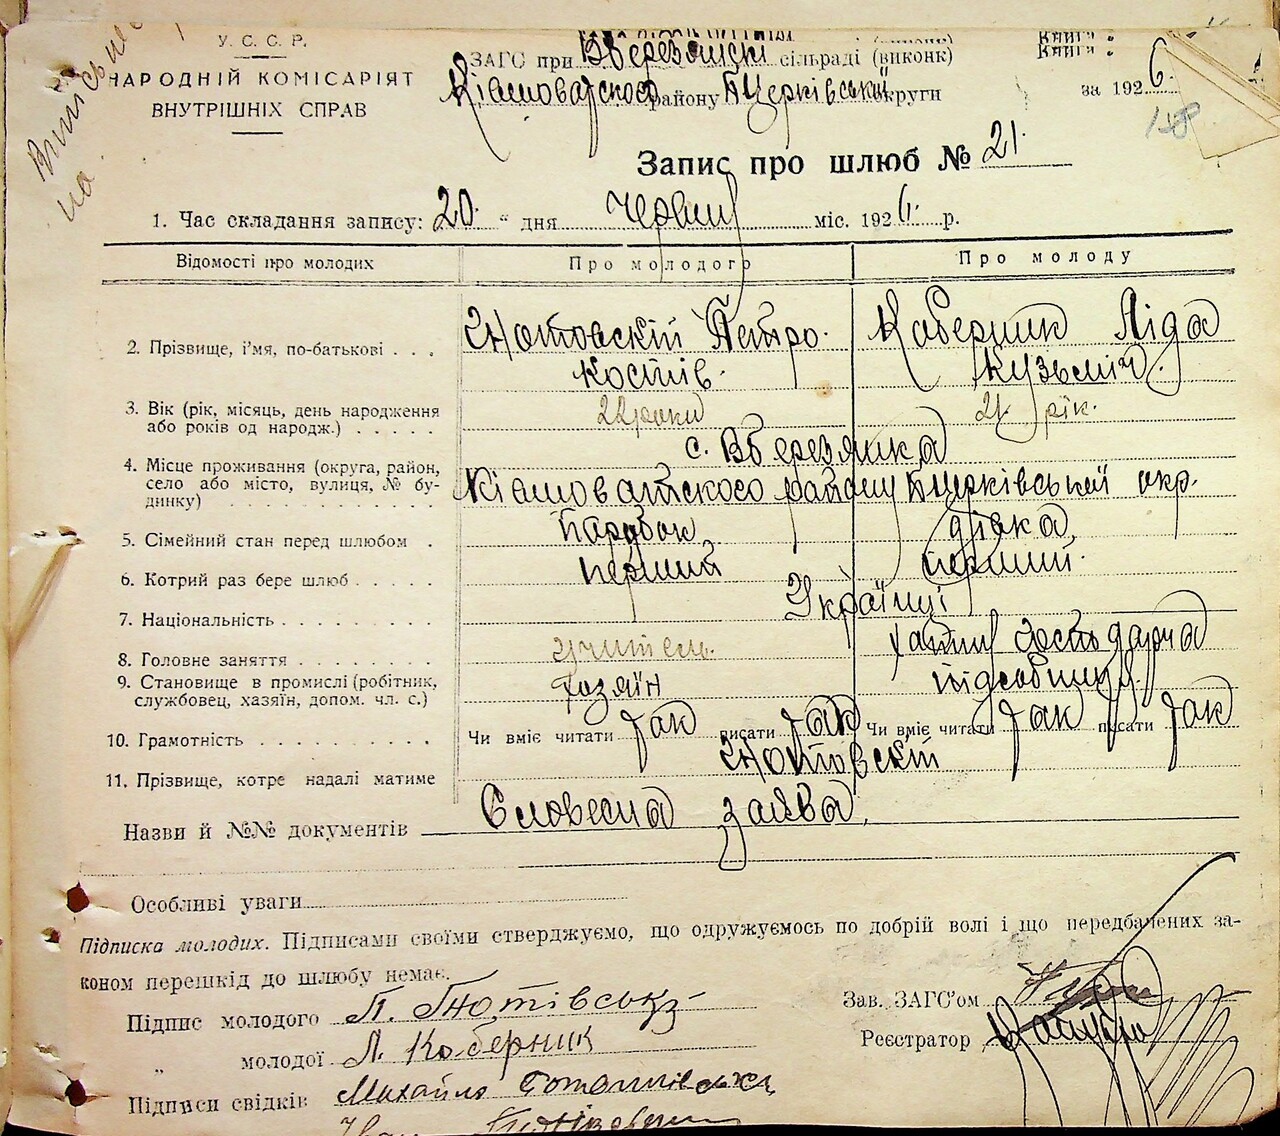 У. С. С. Р.
НАРОДНІЙ КОМІСАРІЯТ
ВНУТРІШНІХ СПРАВ
Книга
ЗАГС при сільраді (виконк)
району Бцерківськї округи
за 1926
158
Запис про шлюб № 21
1. Час складання запису: 20 " дня Червня міс. 1926 р.
Відомості про молодих Про молодого Про молоду
2. Прізвище, і'мя, по-батькові . . . Гнотовскій Петро Коберник Ліда
Костів. Кузьміч.
3. Вік (рік, місяць, день народження 22 роки 21 рік.
або років од народж.) . . . . .
с. Вберезянка
4. Місце проживання (округа, район,
село або місто, вулиця, № бу- району Бцерківської окр.
динку)
5. Сімейний стан перед шлюбом . Парубок дівка
6. Котрий раз бере шлюб . . . . . перший перший.
7. Національність . . . . . . . . . Українці
8. Головне заняття . . . . . . . . учитель. хатня господарча
9. Становище в промислі (робітник, хазяїн
службовец, хазяїн, допом. чл. с.)
10. Грамотність . . . . . . . . . . Чи вміє читати так писати так Чи вміє читати так писати так
11. Прізвище, котре надалі матиме Гнотовскій
Назви й №№ документів Словесна заява.
Особливі уваги
Підписка молодих. Підписами своїми стверджуємо, що одружуємось по добрій волі і що передбачених за-
коном перешкід до шлюбу немає.
Підпис молодого П. Гнотівськ
Зав. ЗАГС'ом
" молодої Л. Коберник
Реєстратор
Підписи свідків Михайло
Іван